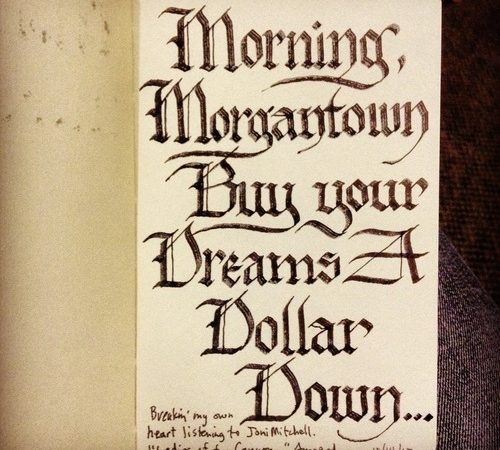 Morning,
Morgantown
Buy your
Dreams A
Dollar
Down...
Breakin' my own
heart listening to Joni Mitchell.
"Ladies of